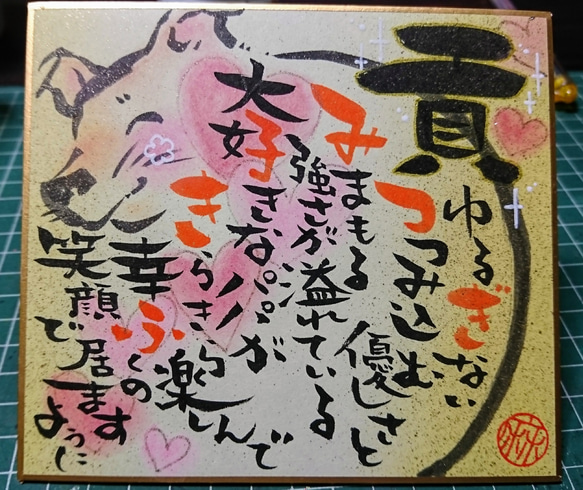 貢
ゆるぎない
つつみ込む
優しさと
みまもる
強さが溢れている
大好きなパパが
きらきら
楽しんで
幸ふくの
笑顔で居ます
ように